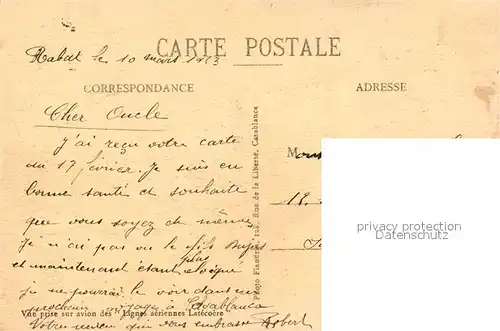 CARTE POSTALE
Rabat le 10 mars 1923
CORRESPONDANCE
ADRESSE
Cher Oncle
J'ai reçu votre carte
du 17 février. Je suis en
bonne santé et souhaite
que vous soyez de même.
Je n'ai pas vu le fils
et maintenant étant plus éloigné
je ne pourrai le voir dans un
prochain voyage à Casablanca
Votre neveu qui vous embrasse
Vue prise sur avion des "Lignes aériennes Latécoère
Photo Flandrin, Rue de la Liberté, Casablanca
18
privacy protection
Datenschutz